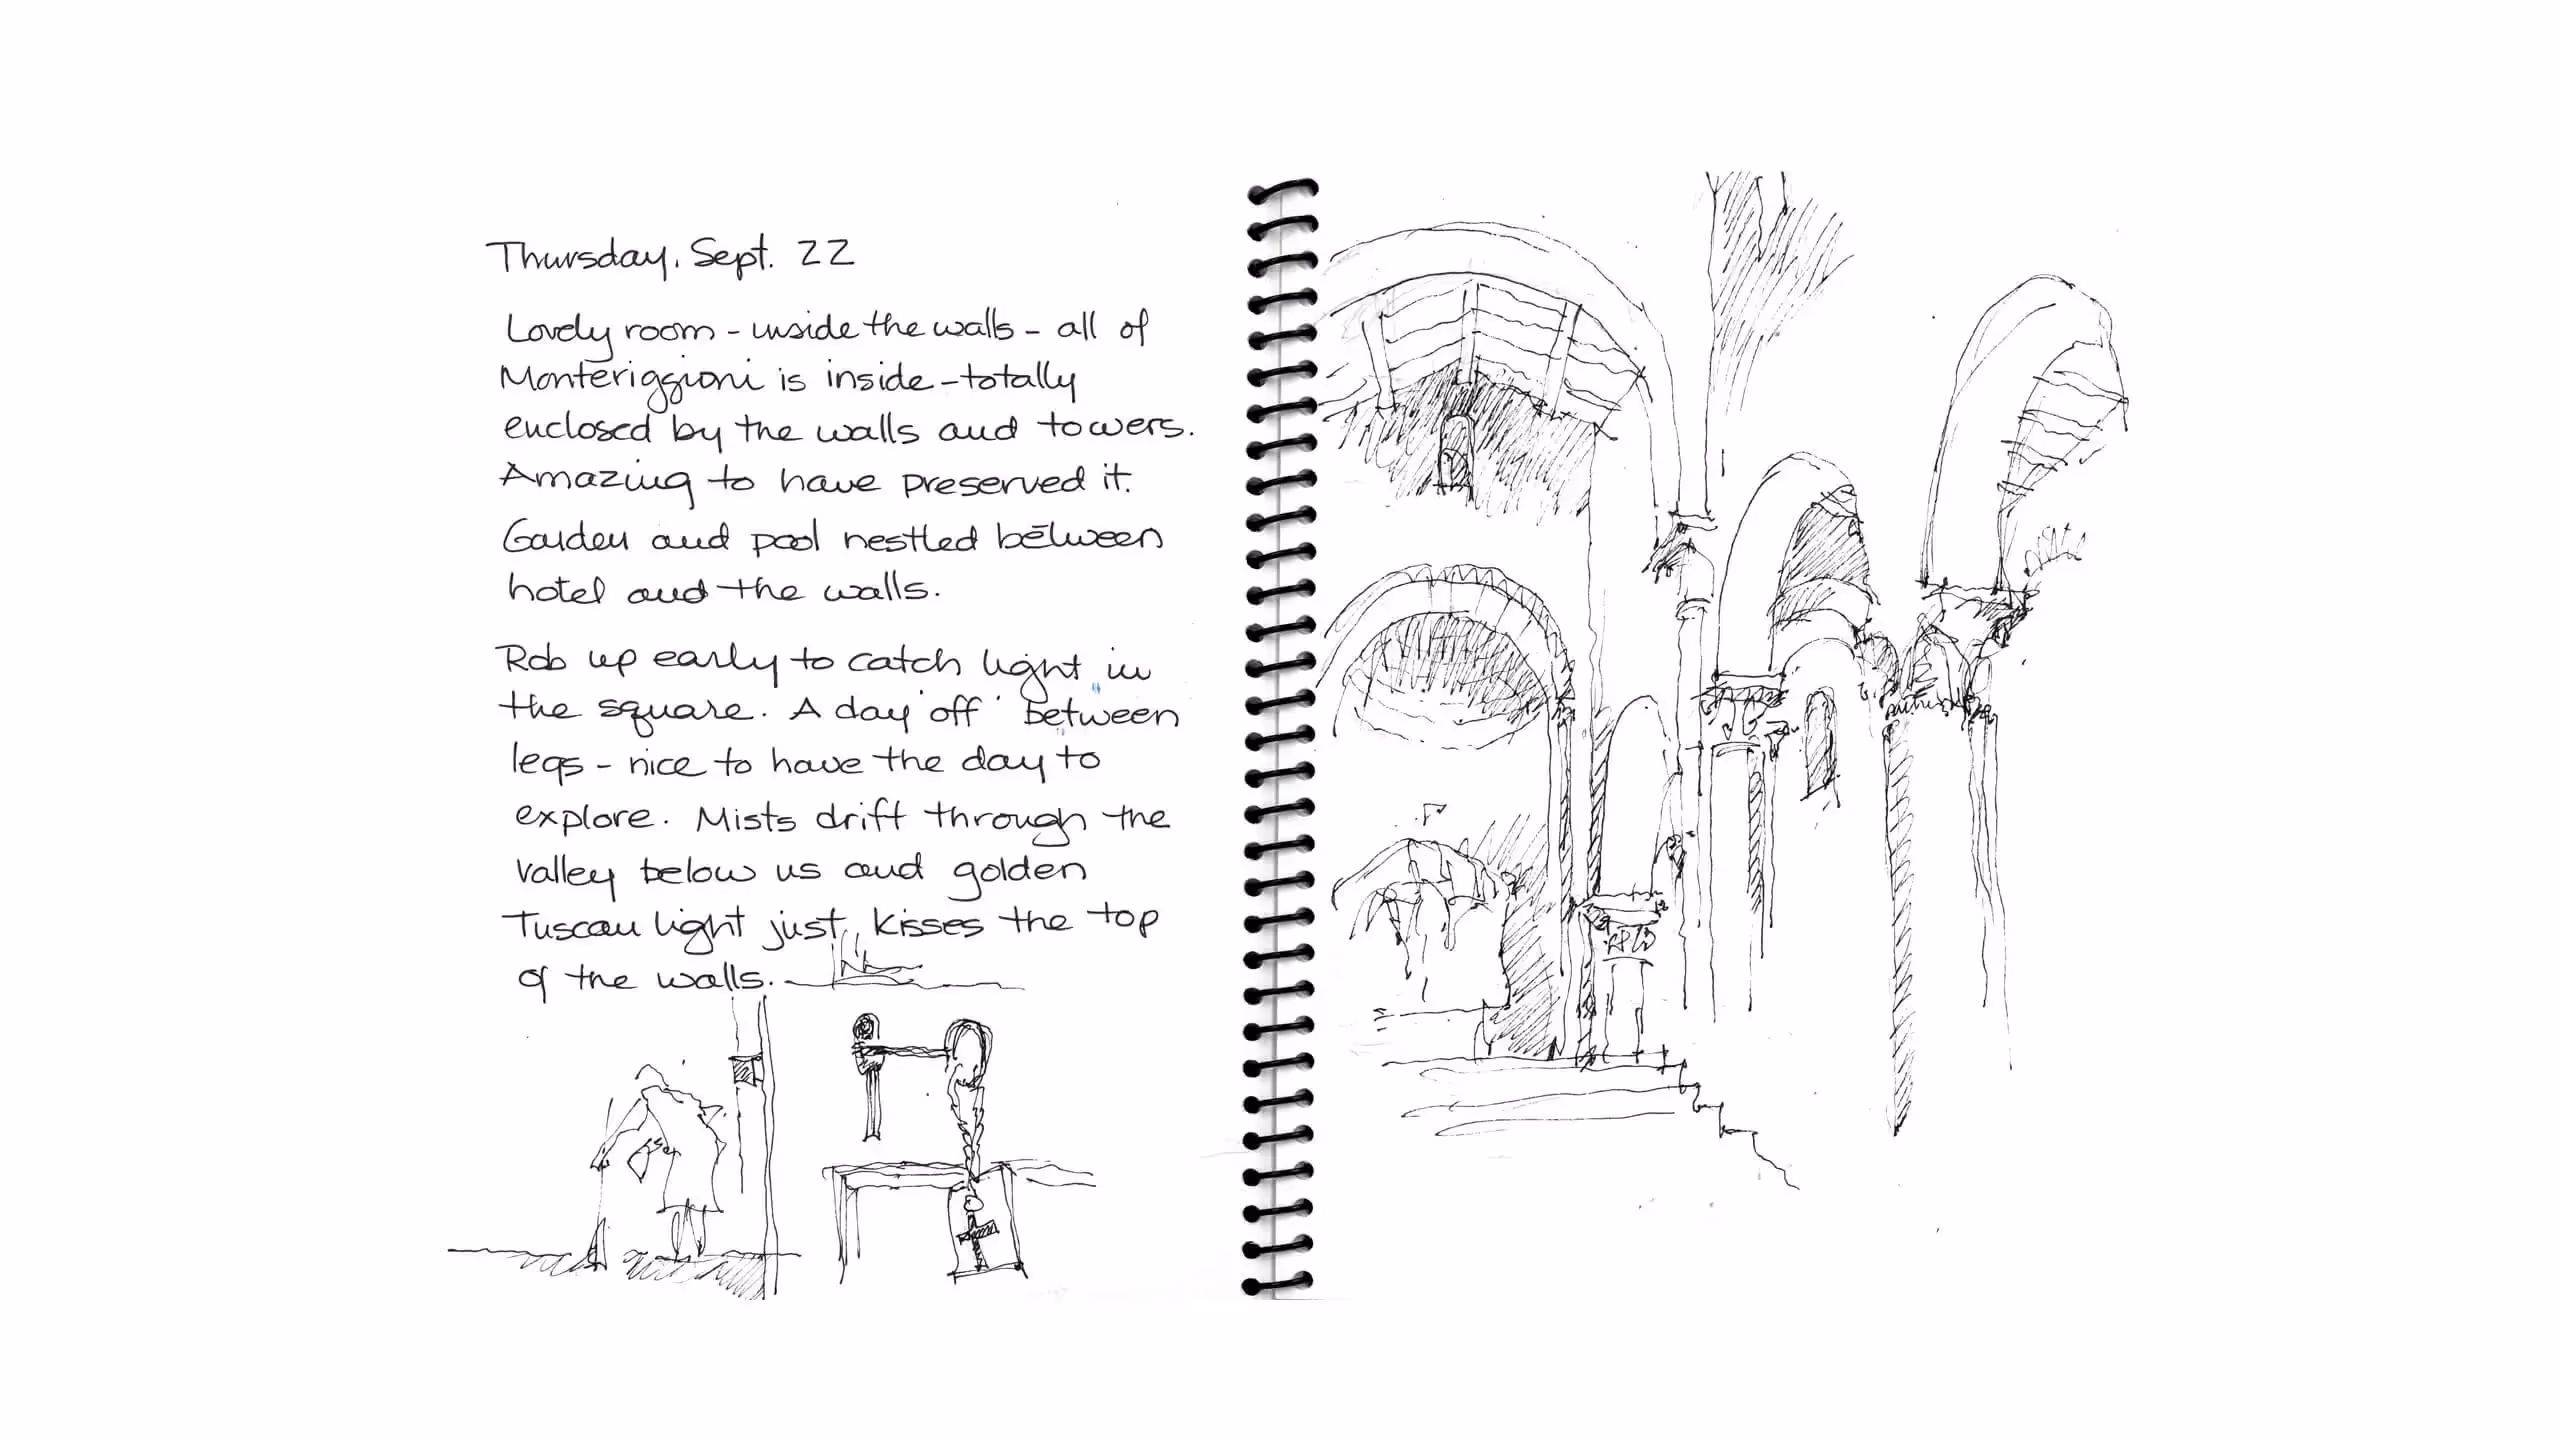 Thursday, Sept. 22
Lovely room - inside the walls - all of
Monteriggioni is inside - totally
enclosed by the walls and towers.
Amazing to have preserved it.
Garden and pool nestled between
hotel and the walls.
Rob up early to catch light in
the square. A day 'off' between
legs - nice to have the day to
explore. Mists drift through the
valley below us and golden
Tuscan light just kisses the top
of the walls.